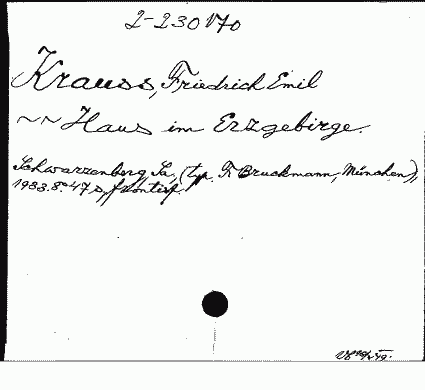 2-230170
Krauss, Friedrich Emil
~~ Haus im Erzgebirge.
Schwarzenberg, Sa., (typ. F. Bruckmann, München),
1933. 8° 47 s, frontisp.